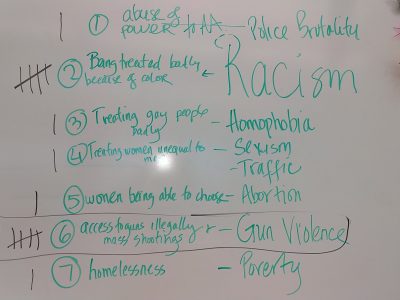 1 abuse of
power to AA — Police Brutality
2 Being treated badly
because of color Racism
3 Treating gay people
badly - Homophobia
4 Treating women unequal to
men - Sexism
- Traffic
5 women being able to choose - Abortion
6 access to guns illegally
mass shootings - Gun Violence
7 homelessness - Poverty